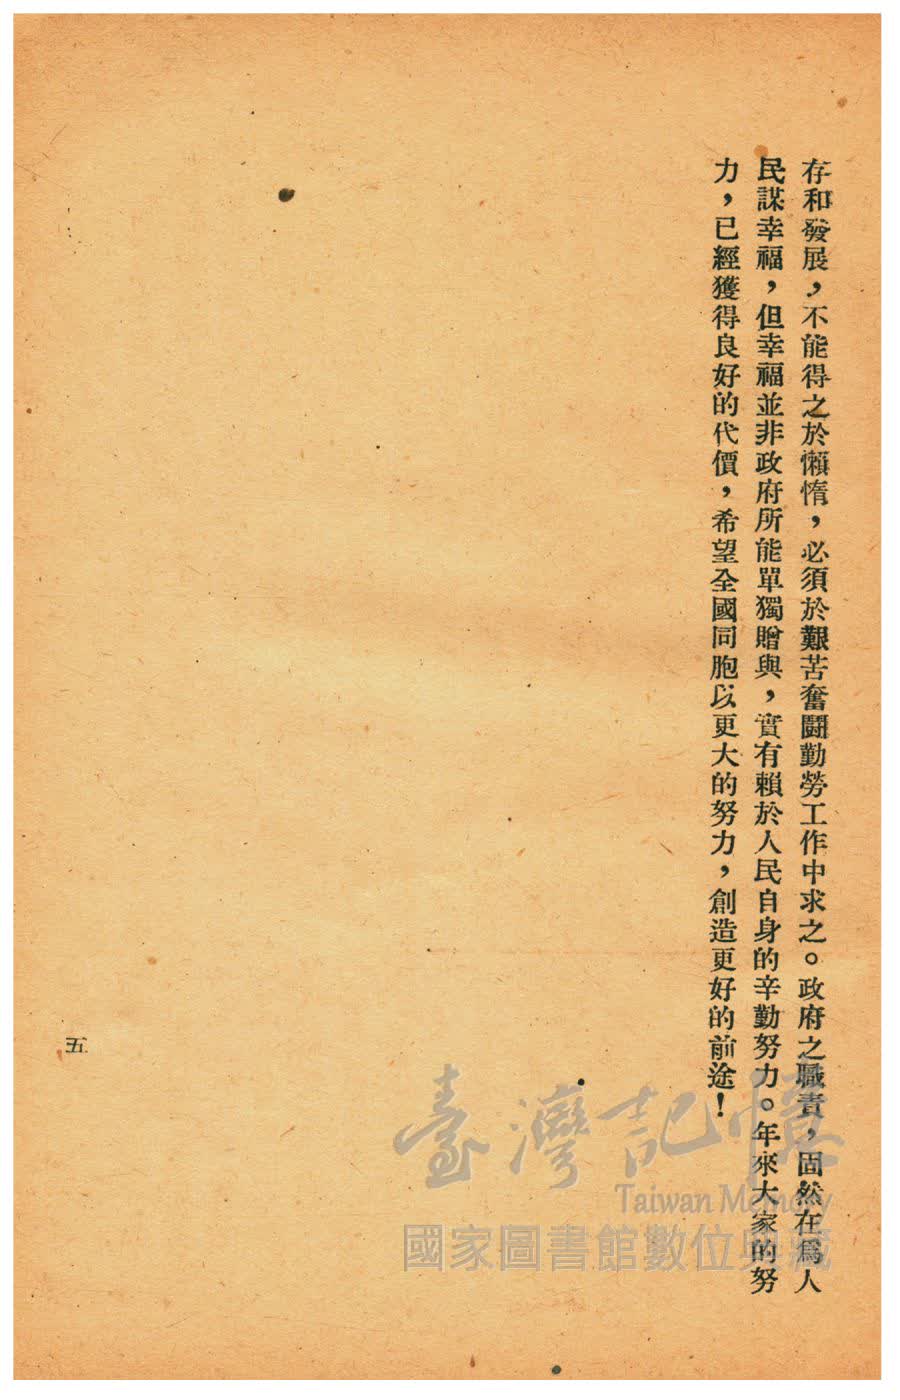 存和發展，不能得之於懶惰，必須於艱苦奮鬪勤勞工作中求之。政府之職責，固然在爲人
民謀幸福，但幸福並非政府所能單獨贈與，實有賴於人民自身的辛勤努力。年來大家的努
力，已經獲得良好的代價，希望全國同胞以更大的努力，創造更好的前途！
五
臺灣記憶
Taiwan Memory
國家圖書館數位典藏